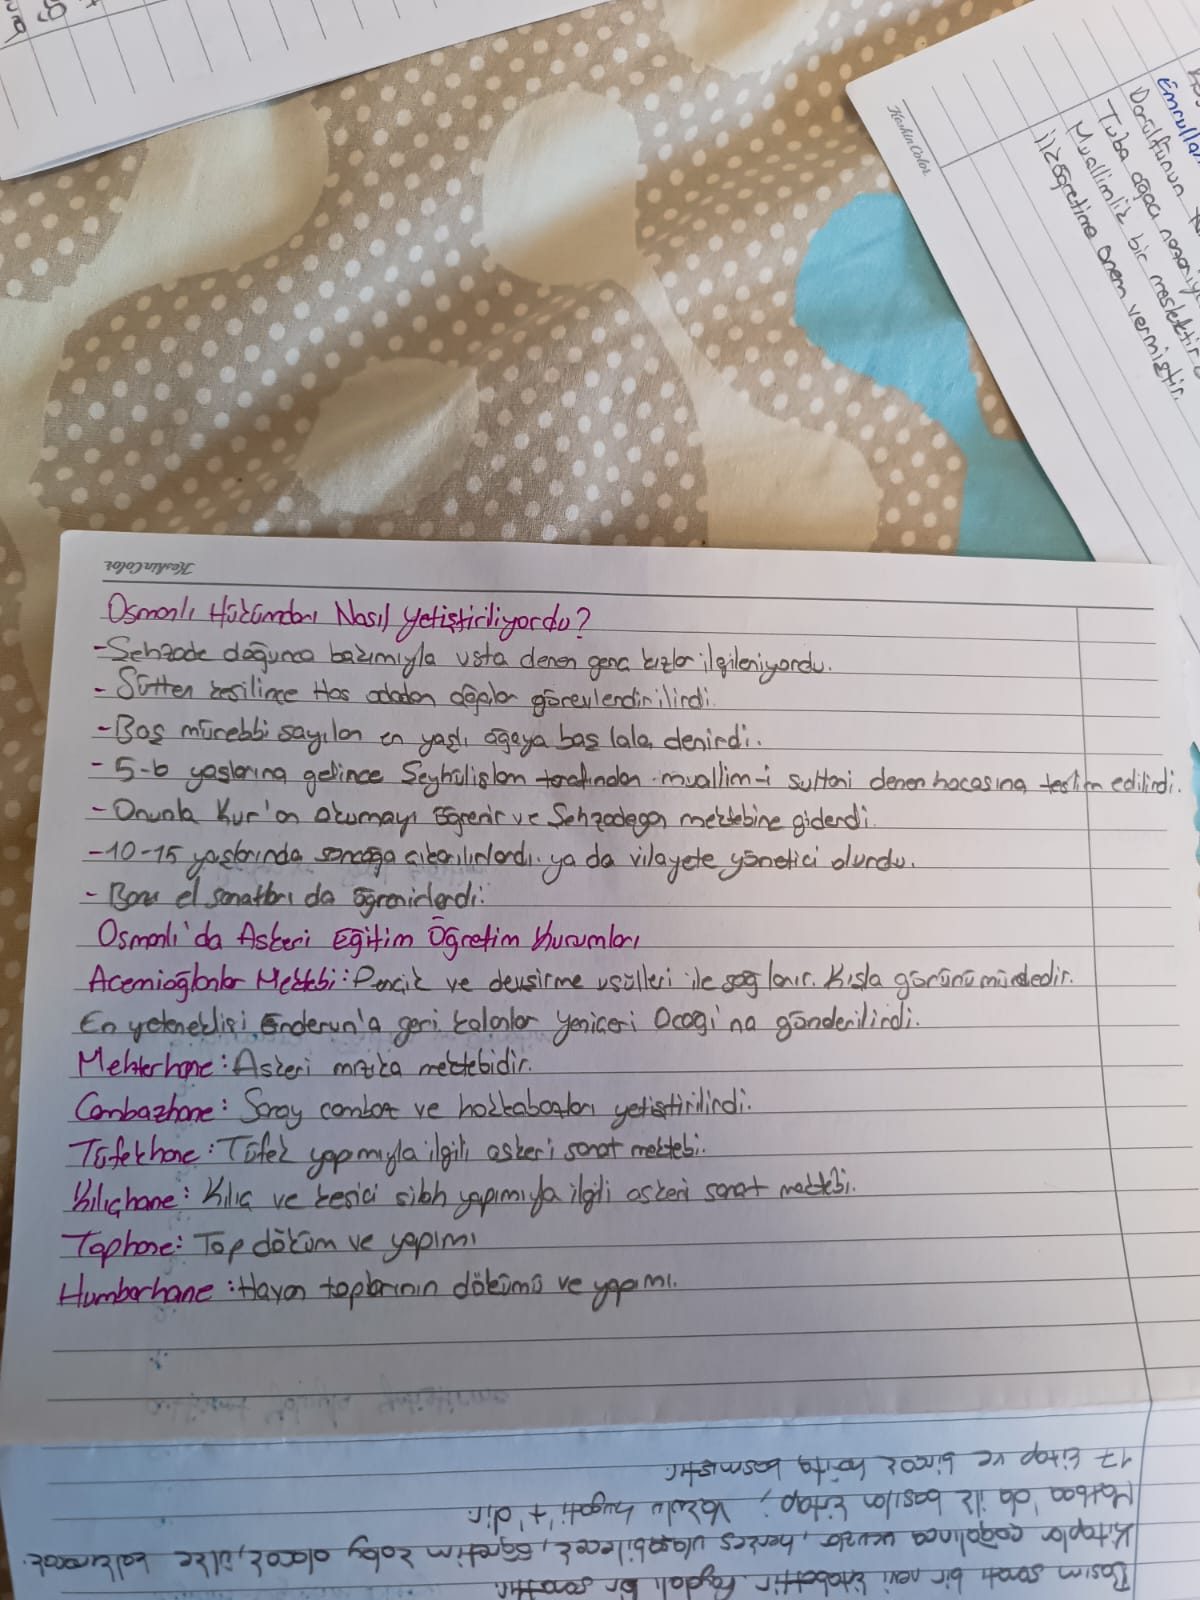 KeskinColor
Emrullah
Darülfünun
Tuba ağacı nazariy
Muallimlik bir meslektir
ilköğretime önem vermiştir.
KeskinColor
Osmanlı Hükümdarı Nasıl Yetiştiriliyordu?
-Şehzade doğunca bakımıyla usta denen genç kızlar ilgileniyordu.
- Sütten kesilince Has odadan ağalar görevlendirilirdi.
-Baş mürebbi sayılan en yaşlı ağaya baş lala denirdi.
- 5-6 yaşlarına gelince Şeyhülislam tarafından muallim-i sultani denen hocasına teslim edilirdi.
- Onunla Kur'an okumayı öğrenir ve Şehzadegan mektebine giderdi.
-10-15 yaşlarında sancağa çıkarılırlardı. ya da vilayete yönetici olurdu.
- Bazı el sanatları da öğrenirlerdi.
Osmanlı'da Askeri Eğitim Öğretim Kurumları
Acemioğlanlar Mektebi: Pencik ve devşirme usülleri ile sağlanır. Kışla görünümündedir.
En yeteneklisi Enderun'a geri kalanlar Yeniçeri Ocağı'na gönderilirdi.
Mehterhane: Askeri mızıka mektebidir.
Cambazhane: Saray cambaz ve hokkabazları yetiştirilirdi.
Tüfekhane: Tüfek yapımıyla ilgili askeri sanat mektebi.
Kılıçhane: Kılıç ve kesici silah yapımıyla ilgili askeri sanat mektebi.
Tophane: Top döküm ve yapımı
Humbarhane: Havan toplarının dökümü ve yapımı.
17 kitap ve birçok harita basmıştır.
Matbaa'da ilk basılan kitap; Vankulu Lugatı't'dir.
Kitaplar çoğalınca ucuzlar, herkes ulaşabilecek, öğretim kolay olacak, ülke kalkınacak.
Basım sanatı bir nevi kitabettir. Faydalı bir sanattır.